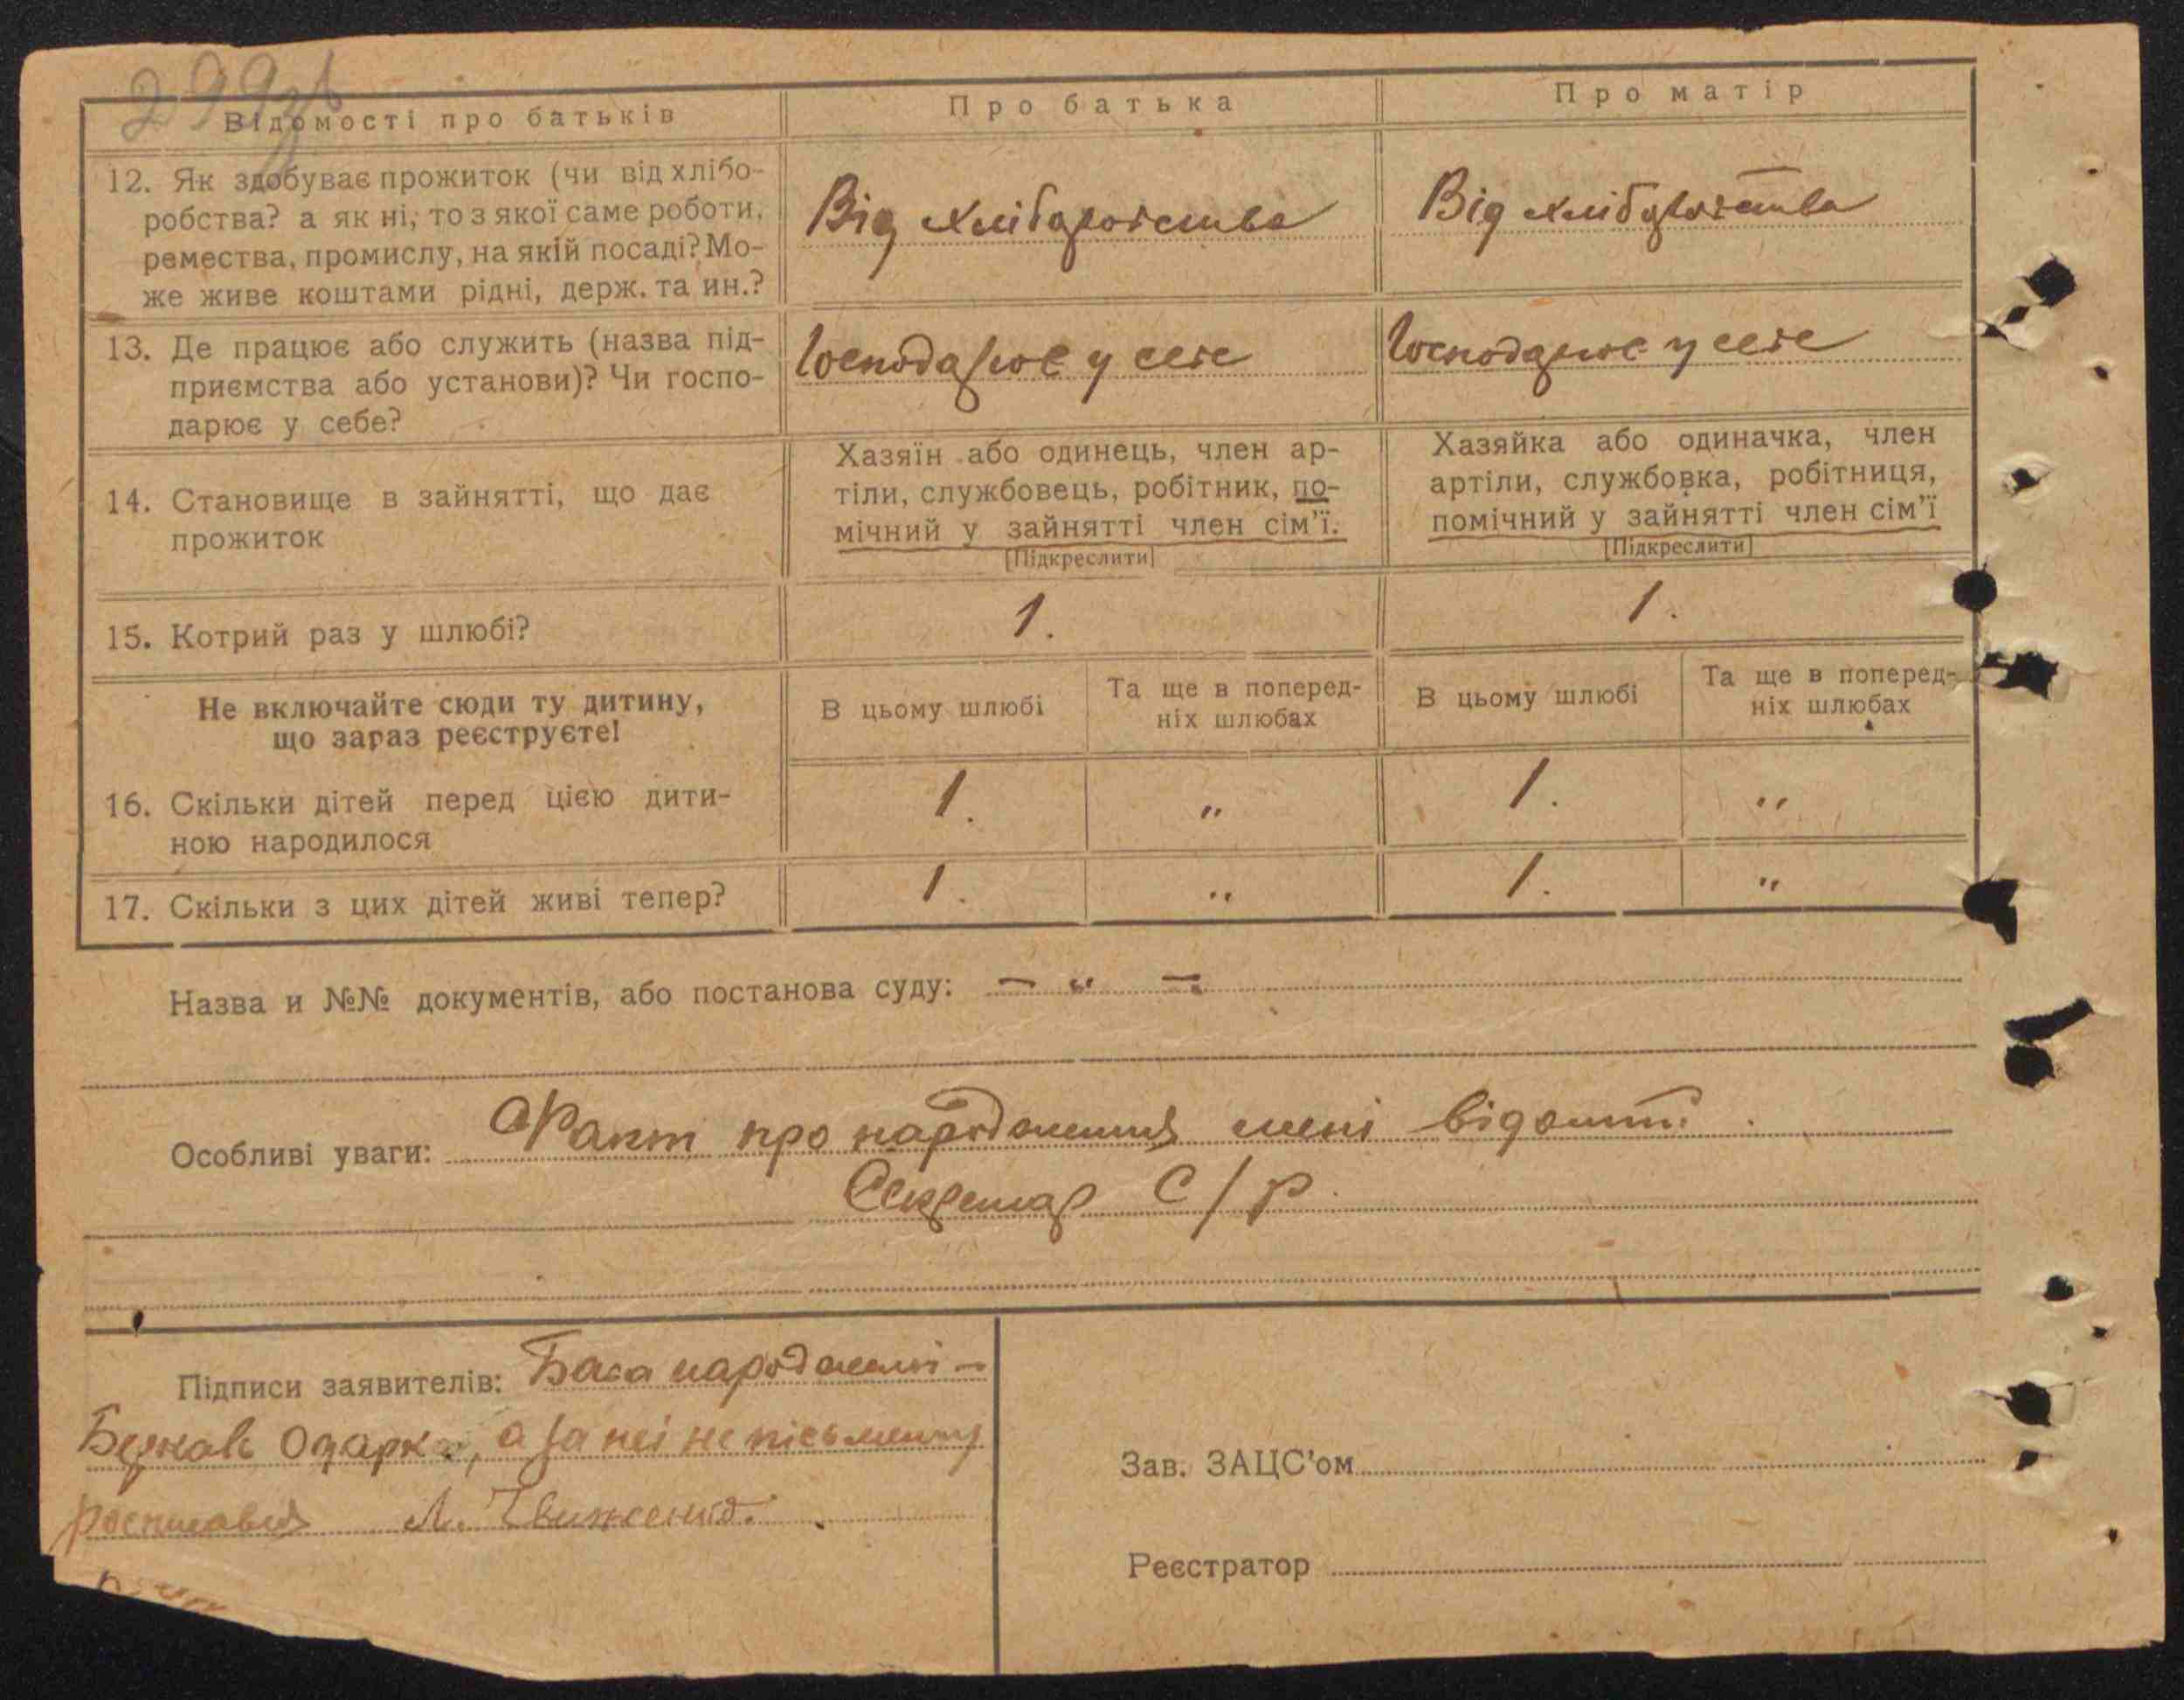 299зв
Відомості про батьків
Про батька
Про матір
12. Як здобуває прожиток (чи від хлібо-
робства? а як ні, то з якої саме роботи,
ремества, промислу, на якій посаді? Мо-
же живе коштами рідні, держ. та ин.?
Від хліборобства
Від хліборобства
13. Де працює або служить (назва під-
приємства або установи)? Чи госпо-
дарює у себе?
Господарює у себе
Господарює у себе
14. Становище в зайнятті, що дає
прожиток
Хазяїн або одинець, член ар-
тіли, службовець, робітник, по-
мічний у зайнятті член сім'ї.
[Підкреслити]
Хазяйка або одиначка, член
артіли, службовка, робітниця,
помічний у зайнятті член сім'ї
[Підкреслити]
15. Котрий раз у шлюбі?
1.
1.
Не включайте сюди ту дитину,
що зараз реєструєте!
В цьому шлюбі
Та ще в поперед-
ніх шлюбах
В цьому шлюбі
Та ще в поперед-
ніх шлюбах
16. Скільки дітей перед цією дити-
ною народилося
1.
"
1.
"
17. Скільки з цих дітей живі тепер?
1.
"
1.
"
Назва и №№ документів, або постанова суду: — " —
Особливі уваги: Факт про народження мені відомий.
Секретар С/Р.
Підписи заявителів: Баба народжені -
Одарка, а за неї не письменну
росписався Л.
Зав. ЗАЦС'ом
Реєстратор